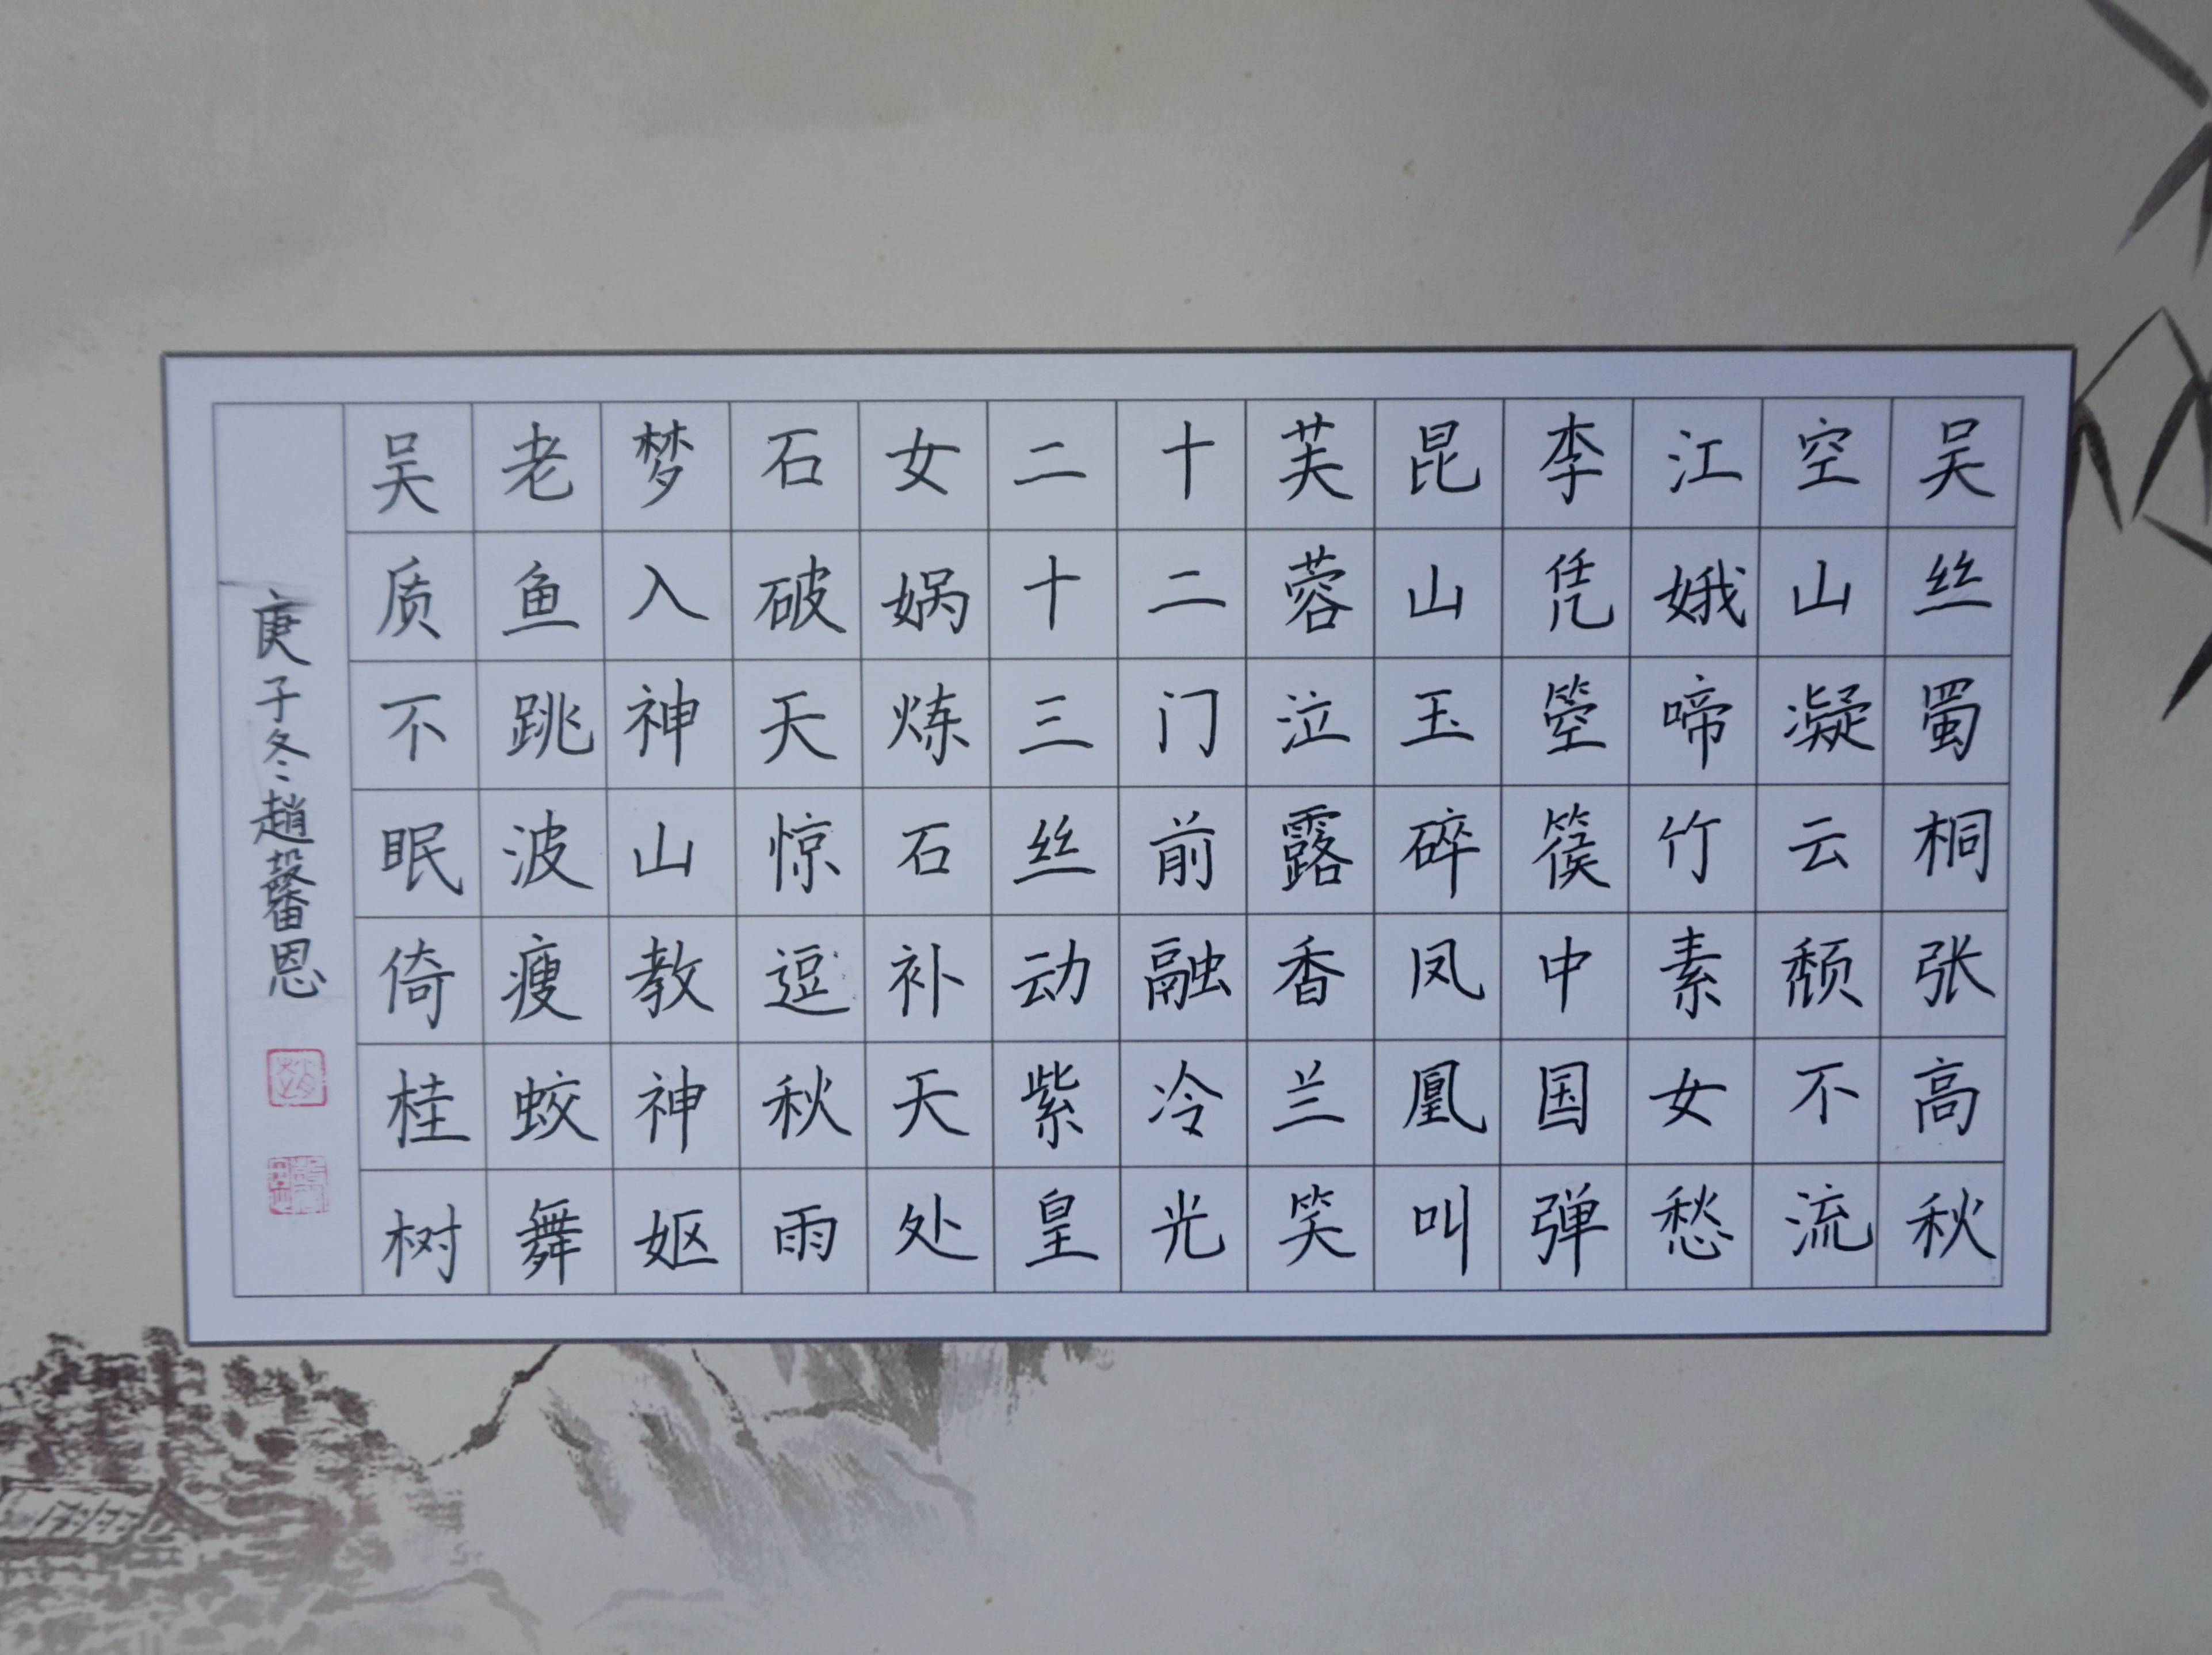 吴丝蜀桐张高秋
空山凝云颓不流
江娥啼竹素女愁
李凭箜篌中国弹
昆山玉碎凤凰叫
芙蓉泣露香兰笑
十二门前融冷光
二十三丝动紫皇
女娲炼石补天处
石破天惊逗秋雨
梦入神山教神妪
老鱼跳波瘦蛟舞
吴质不眠倚桂树
庚子冬趙馨恩